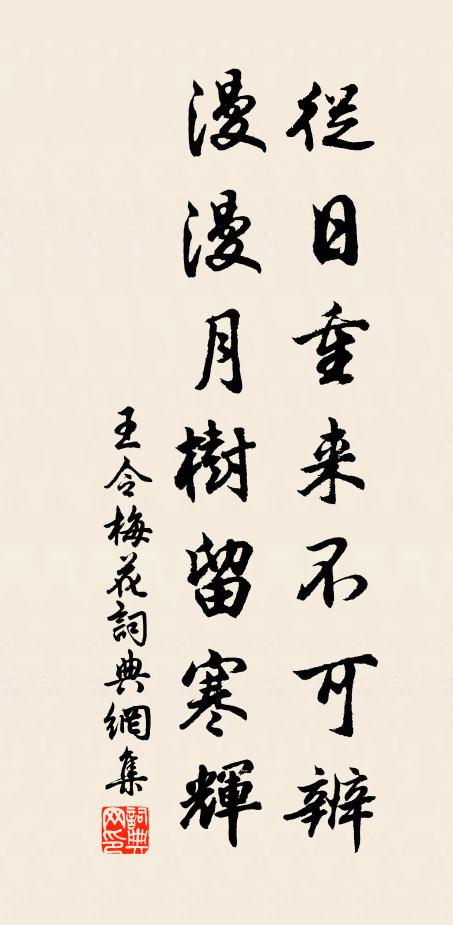 從日重来不可辨
漫漫月樹留寒輝
王令梅花詞典網集
詞典
网印